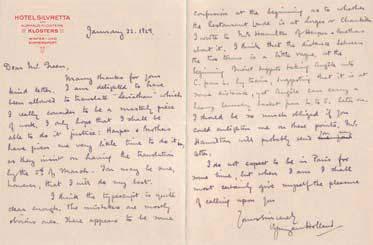 HOTEL SILVRETTA
KLOSTERS
January 22. 1929.
Dear Mr. Green,
Many thanks for your
kind letter. I am delighted to have
been allowed to translate "Leviathan" which
I really consider to be a masterly piece
of work. I only hope that I shall be
able to do it justice. Harper & Brothers
have given me very little time to do it in,
as they insist on having the translation
by the 5th of March. You may be sure,
however, that I will do my best.
I think the typescript is quite
clear enough, the mistakes are mostly
obvious ones. There appears to be some
confusion at the beginning as to whether
the Restaurant Londe is at Lorges or Chanteilles.
I wrote to Mr. Hamilton of Harper & Brothers
about it. I think that the distance between
the two towns is a little vague at the
beginning.
by train, suggesting that it is at
some distance, yet Angèle can carry a
heavy laundry basket from L. to C. later on.
I should be so much obliged if you
could enlighten me on these points. Mr.
Hamilton will probably send you my
letter.
I do not expect to be in Paris for
some time, but when I am I shall
most certainly give myself the pleasure
of calling upon you.
Yours sincerely
Vyvyan Holland